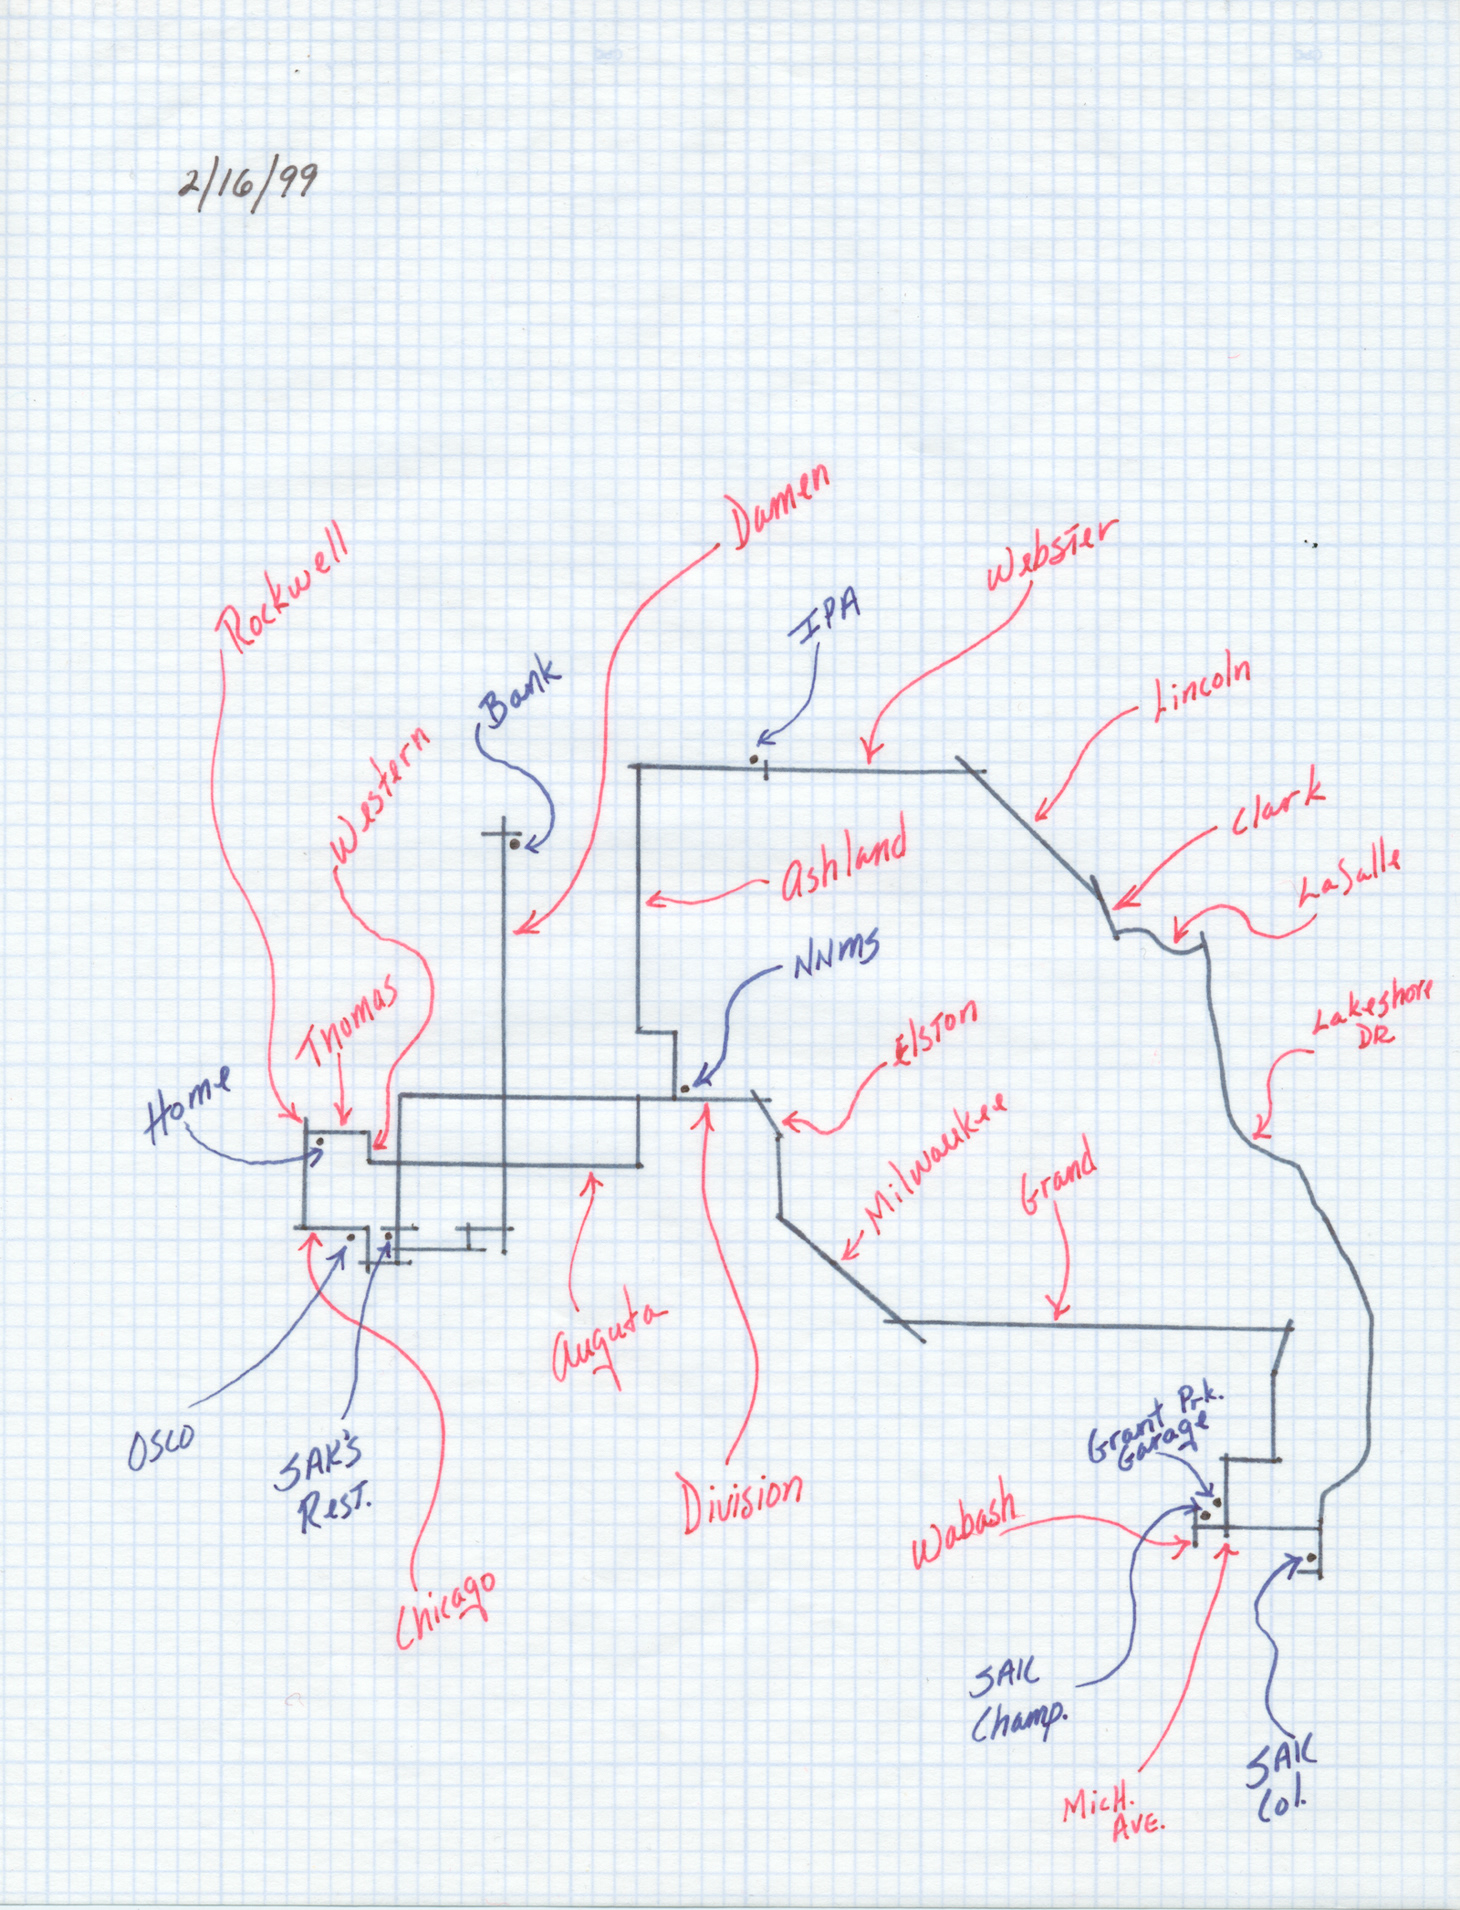 2/16/99
Damen
Webster
Rockwell
IPA
Bank
Lincoln
Western
Clark
Ashland
LaSalle
NNMS
Thomas
Elston
Lakeshore
DR
Home
Milwaukee
Grand
Auguta
Grant Prk.
Garage
OSCO
SAK'S
Rest.
Division
Wabash
Chicago
SAK
Champ.
SAK
Col.
Mich.
Ave.